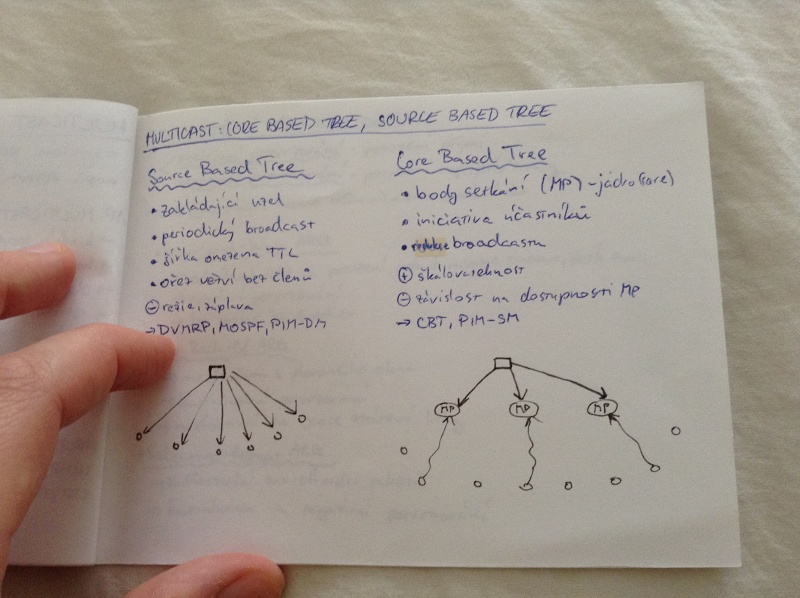 MULTICAST: CORE BASED TREE, SOURCE BASED TREE
Source Based Tree
• zakládající uzel
• periodický broadcast
• šířka omezena TTL
• ořez větví bez členů
⊖ režie, záplava
→ DVMRP, MOSPF, PIM-DM
Core Based Tree
• body setkání (MP) - jádro (core)
• iniciativa účastníků
• redukce broadcastu
⊕ škálovatelnost
⊖ závislost na dostupnosti MP
→ CBT, PIM-SM
MP MP MP